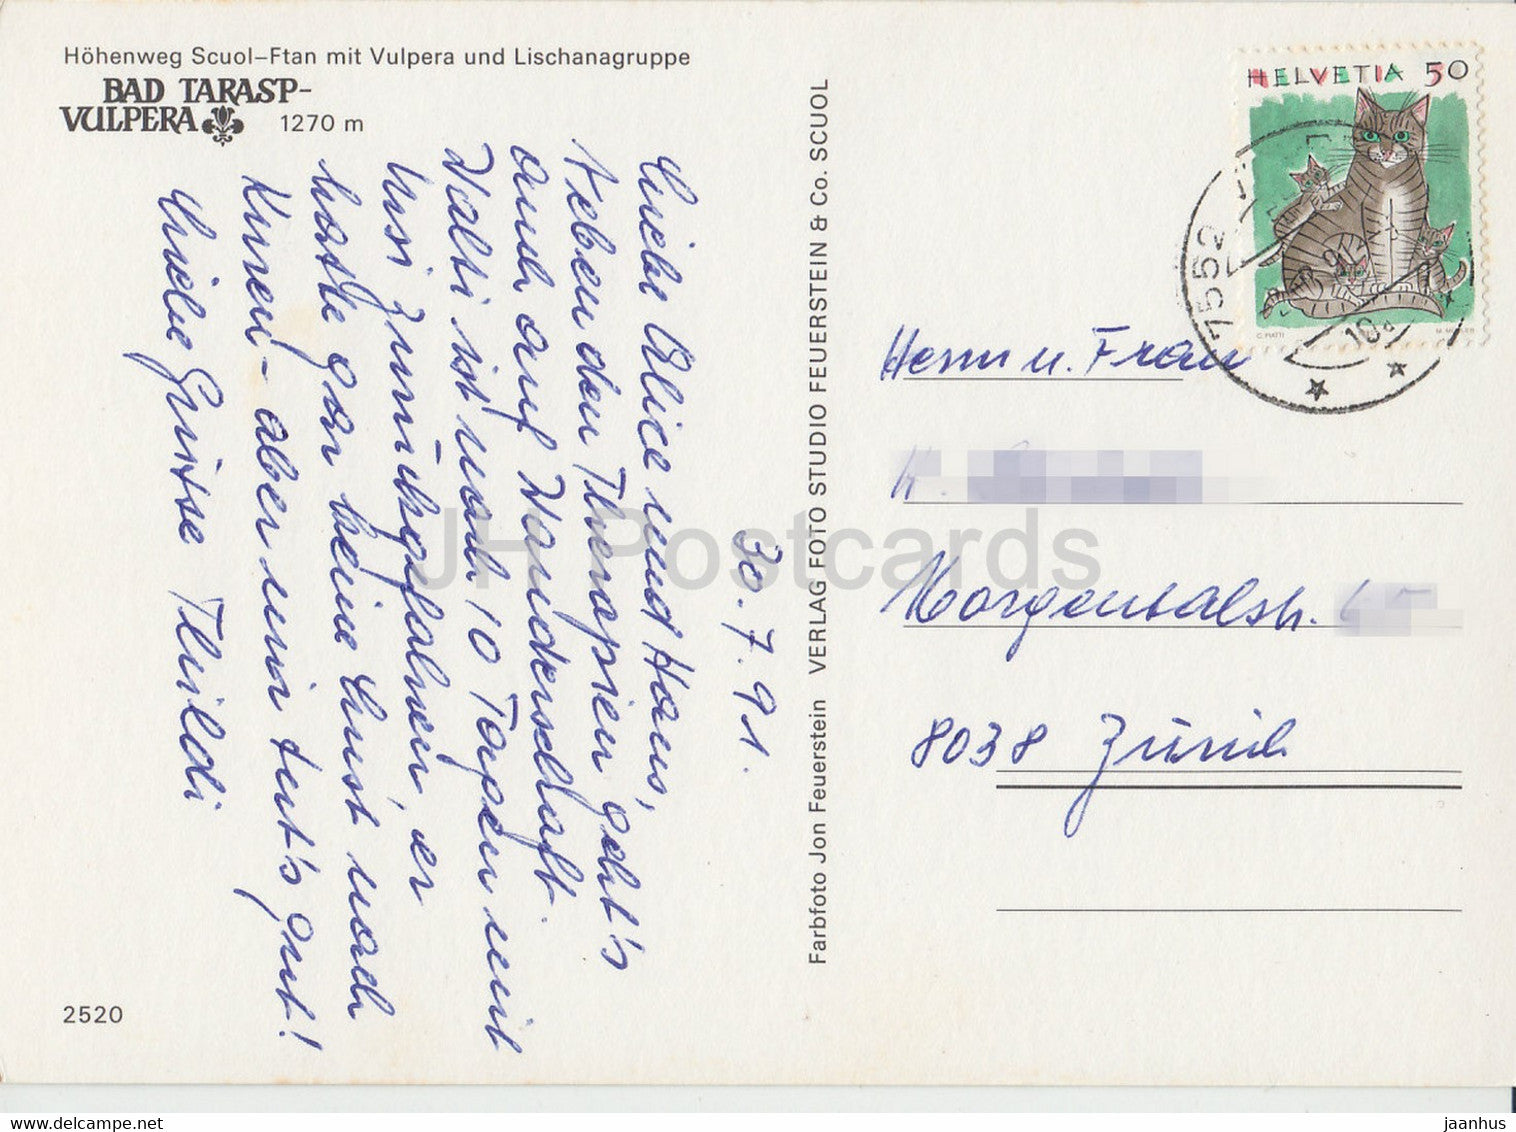 Höhenweg Scuol–Ftan mit Vulpera und Lischanagruppe
BAD TARASP-
VULPERA 1270 m
30. 7. 91.
Liebe Alice und Hans,
Neben den Therapien geht's
auch auf Wanderschaft.
Walti ist nach 10 Tagen mit
Susi zurückgefahren, er
hatte gar keine Lust nach
Kuren - aber mir tut's gut!
Liebe Grüsse Thildi
2520
Farbfoto Jon Feuerstein VERLAG FOTO STUDIO FEUERSTEIN & Co. SCUOL
HELVETIA 50
7552
10
Herrn u. Frau
Morgentalstr.
8038 Zürich
JH Postcards
jaanhus